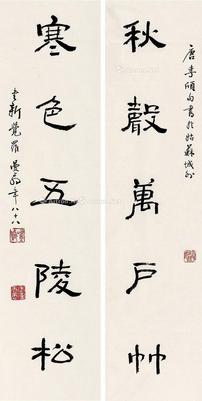 秋聲萬戶竹
唐李頎句書於姑蘇城外
寒色五陵松
老新覺羅
年八十八